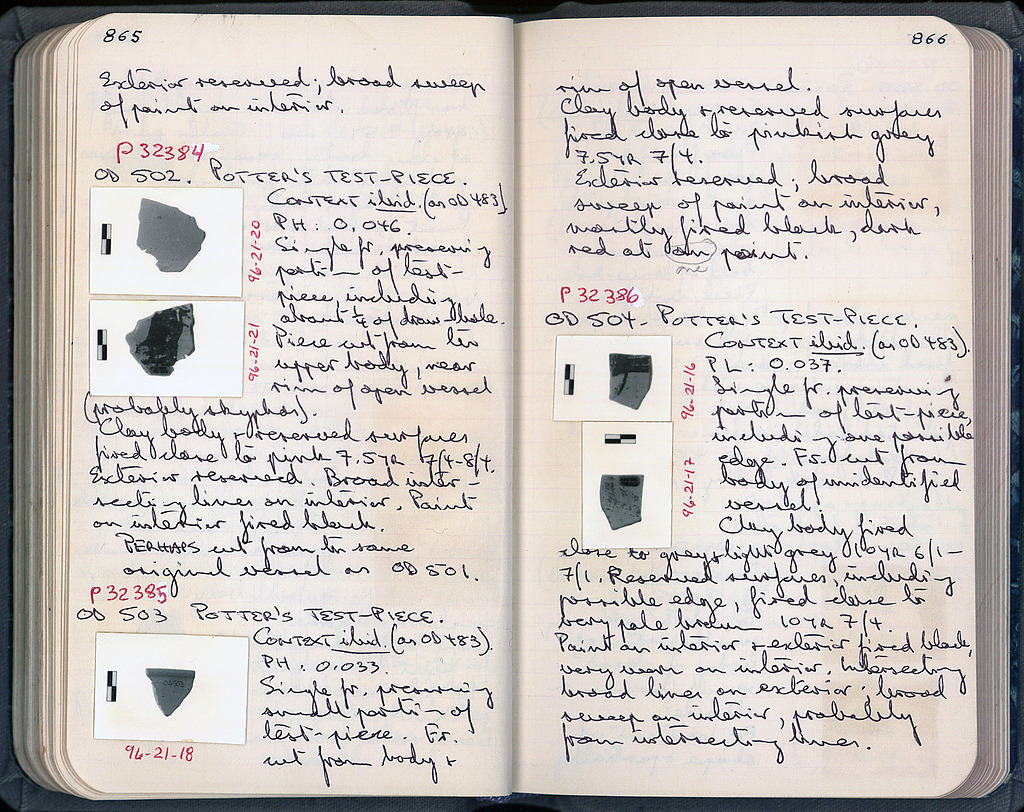 865
Exterior reserved; broad sweep
of paint on interior.
P 32384
OD 502. POTTER'S TEST-PIECE.
CONTEXT ibid. (as OD 483)
PH: 0.046.
Single fr. preserving
portion of test-
piece, including
about 1/4 of draw-hole.
Piece cut from the
upper body, near
rim of open vessel
(probably skyphos).
Clay body + reserved surfaces
fired close to pink 7.5YR 7/4-8/4.
Exterior reserved. Broad inter-
secting lines on interior. Paint
on interior fired black.
PERHAPS cut from the same
original vessel as OD 501.
96-21-20
96-21-21
P 32385
OD 503 POTTER'S TEST-PIECE.
CONTEXT ibid. (as OD 483).
PH: 0.033.
Single fr. preserving
small portion of
test-piece. Fr.
cut from body +
OD 503
96-21-18
866
rim of open vessel.
Clay body + reserved surfaces
fired close to pinkish grey
7.5YR 7/4.
Exterior reserved; broad
sweep of paint on interior,
mostly fired black, dark
red at on point.
one
P 32386
OD 504- POTTER'S TEST-PIECE.
CONTEXT ibid. (as OD 483).
PL: 0.037.
Single fr. preserving
portion of test-piece,
including one possible
edge. Fr. cut from
body of unidentified
vessel.
Clay body fired
close to grey+light grey 10YR 6/1-
7/1. Reserved surfaces, including
possible edge, fired close to
very pale brown 10YR 7/4.
Paint on interior + exterior fired black,
very worn on interior. Intersecting
broad lines on exterior; broad
sweep on interior, probably
from intersecting lines.
96-21-16
96-21-17